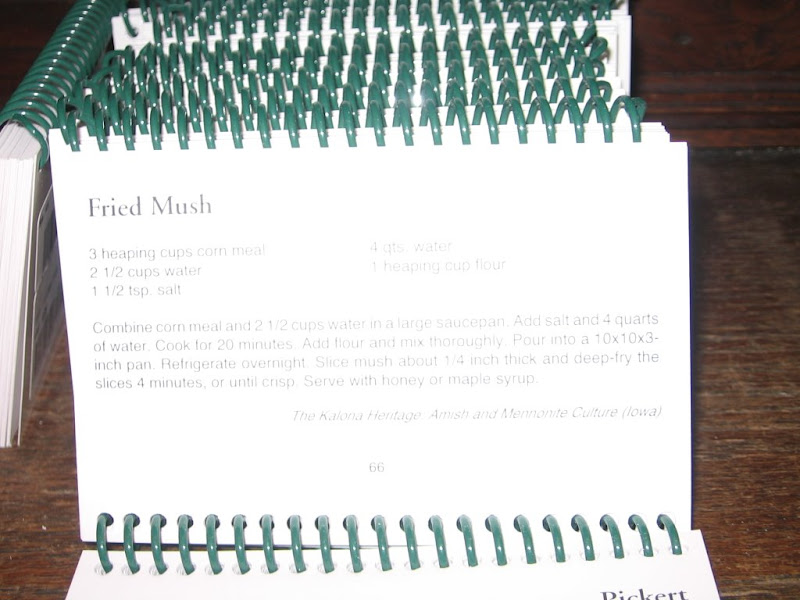 Fried Mush
3 heaping cups corn meal
2 1/2 cups water
1 1/2 tsp. salt
4 qts. water
1 heaping cup flour
Combine corn meal and 2 1/2 cups water in a large saucepan. Add salt and 4 quarts
of water. Cook for 20 minutes. Add flour and mix thoroughly. Pour into a 10x10x3-
inch pan. Refrigerate overnight. Slice mush about 1/4 inch thick and deep-fry the
slices 4 minutes, or until crisp. Serve with honey or maple syrup.
The Kalona Heritage: Amish and Mennonite Culture (Iowa)
66
Pickert